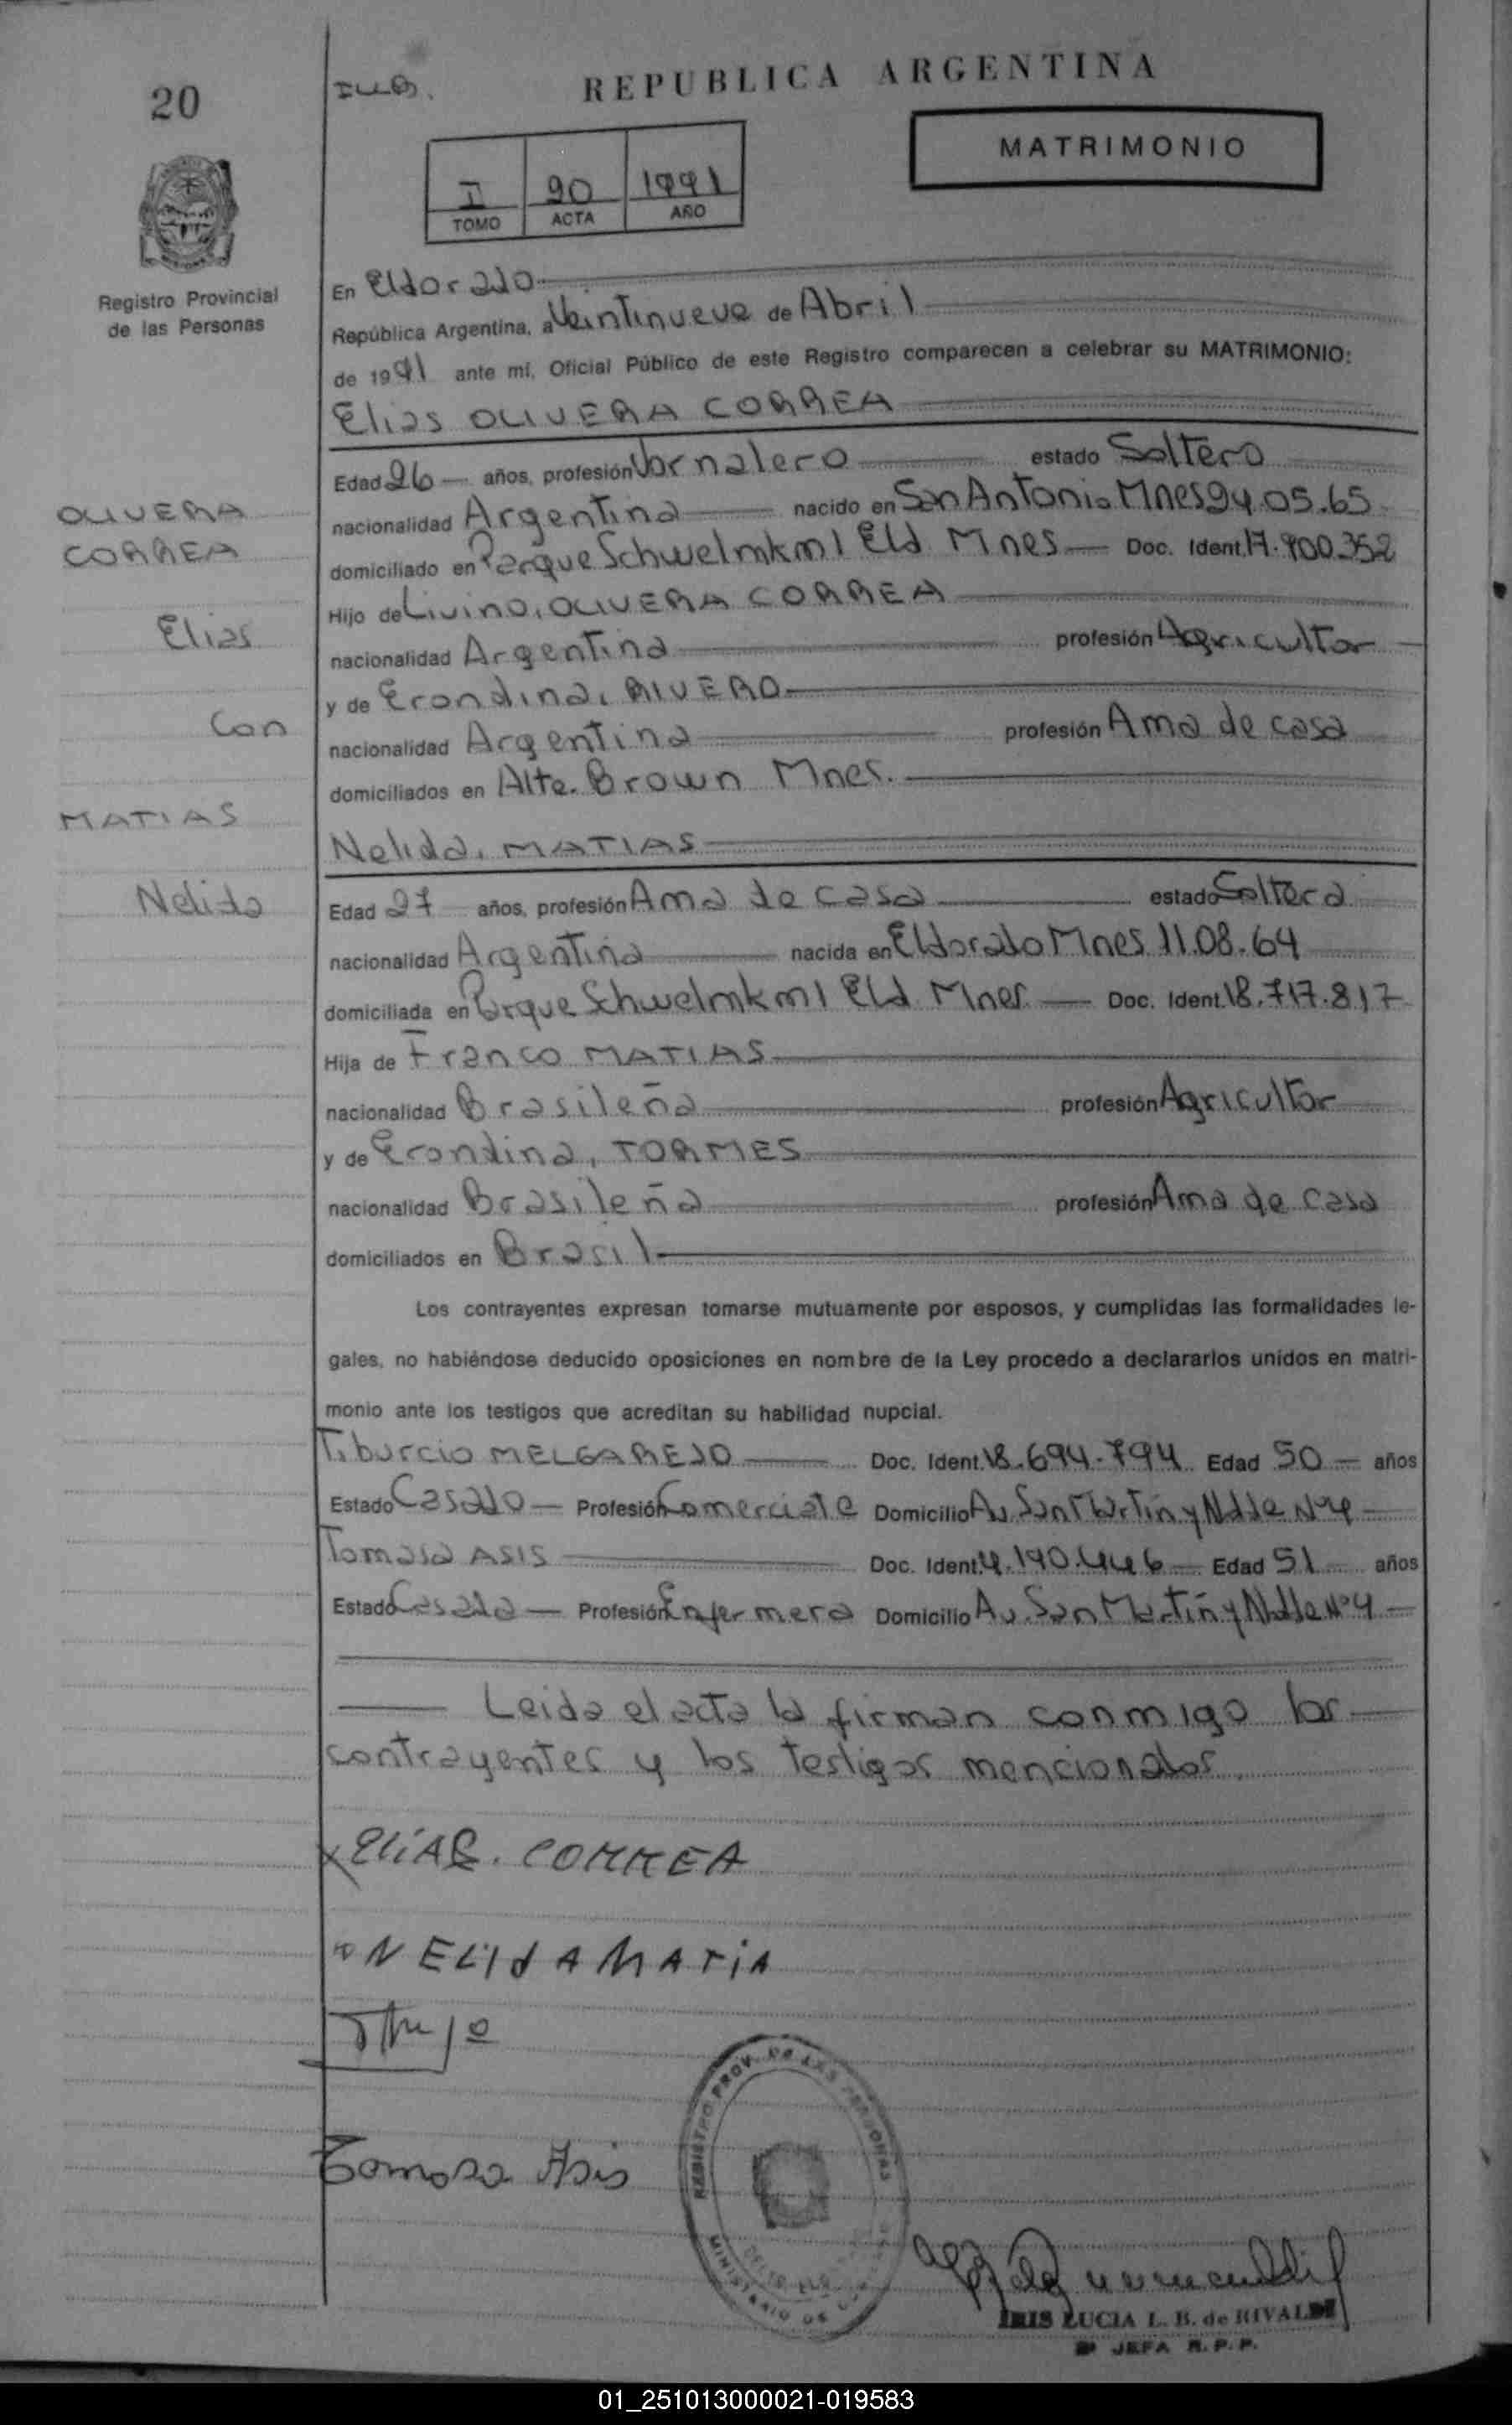 20
ILLB.
REPUBLICA ARGENTINA
MATRIMONIO
II 90 1991
TOMO ACTA AÑO
Registro Provincial
de las Personas
En Eldorado
República Argentina, a Veintinueve de Abril
de 1991 ante mí, Oficial Público de este Registro comparecen a celebrar su MATRIMONIO:
Elias OLIVERA CORREA
Edad 26 años, profesión Jornalero estado Soltero
OLIVERA
nacionalidad Argentina nacido en San Antonio Mnes 24.05.65
CORREA
domiciliado en Parque Schwelm km 1 Eld. Mnes Doc. Ident. 17.900.352
Hijo de Livino, OLIVERA CORREA
Elias
nacionalidad Argentina profesión Agricultor
y de Erondina, RIVERO
Con
nacionalidad Argentina profesión Ama de casa
domiciliados en Alte. Brown Mnes.
MATIAS
Nelida, MATIAS
Nelida
Edad 27 años, profesión Ama de casa estado Soltera
nacionalidad Argentina nacida en Eldorado Mnes 11.08.64
domiciliada en Parque Schwelm km 1 Eld. Mnes Doc. Ident. 18.717.817
Hija de Franco MATIAS
nacionalidad Brasileña profesión Agricultor
y de Erondina, TORMES
nacionalidad Brasileña profesión Ama de casa
domiciliados en Brasil
Los contrayentes expresan tomarse mutuamente por esposos, y cumplidas las formalidades le-
gales, no habiéndose deducido oposiciones en nombre de la Ley procedo a declararlos unidos en matri-
monio ante los testigos que acreditan su habilidad nupcial.
Tiburcio MELGAREJO Doc. Ident. 18.694.794 Edad 50 años
Estado Casado Profesión Comerciate Domicilio Av. San Martin y Ndde Nº4
Tomasa ASIS Doc. Ident. 4.190.446 Edad 51 años
Estado Casada Profesión Enfermera Domicilio Av. San Martin y Ndde Nº4
Leida el acta la firman conmigo los
contrayentes y los testigos mencionados.
ELiAS. CORREA
NELIdA MATiA
Tomasa Asis
REGISTRO PROV. DE LAS PERSONAS
MINISTERIO DE
IRIS LUCIA L. B. de RIVALDI
JEFA R.P.P.
01_251013000021-019583